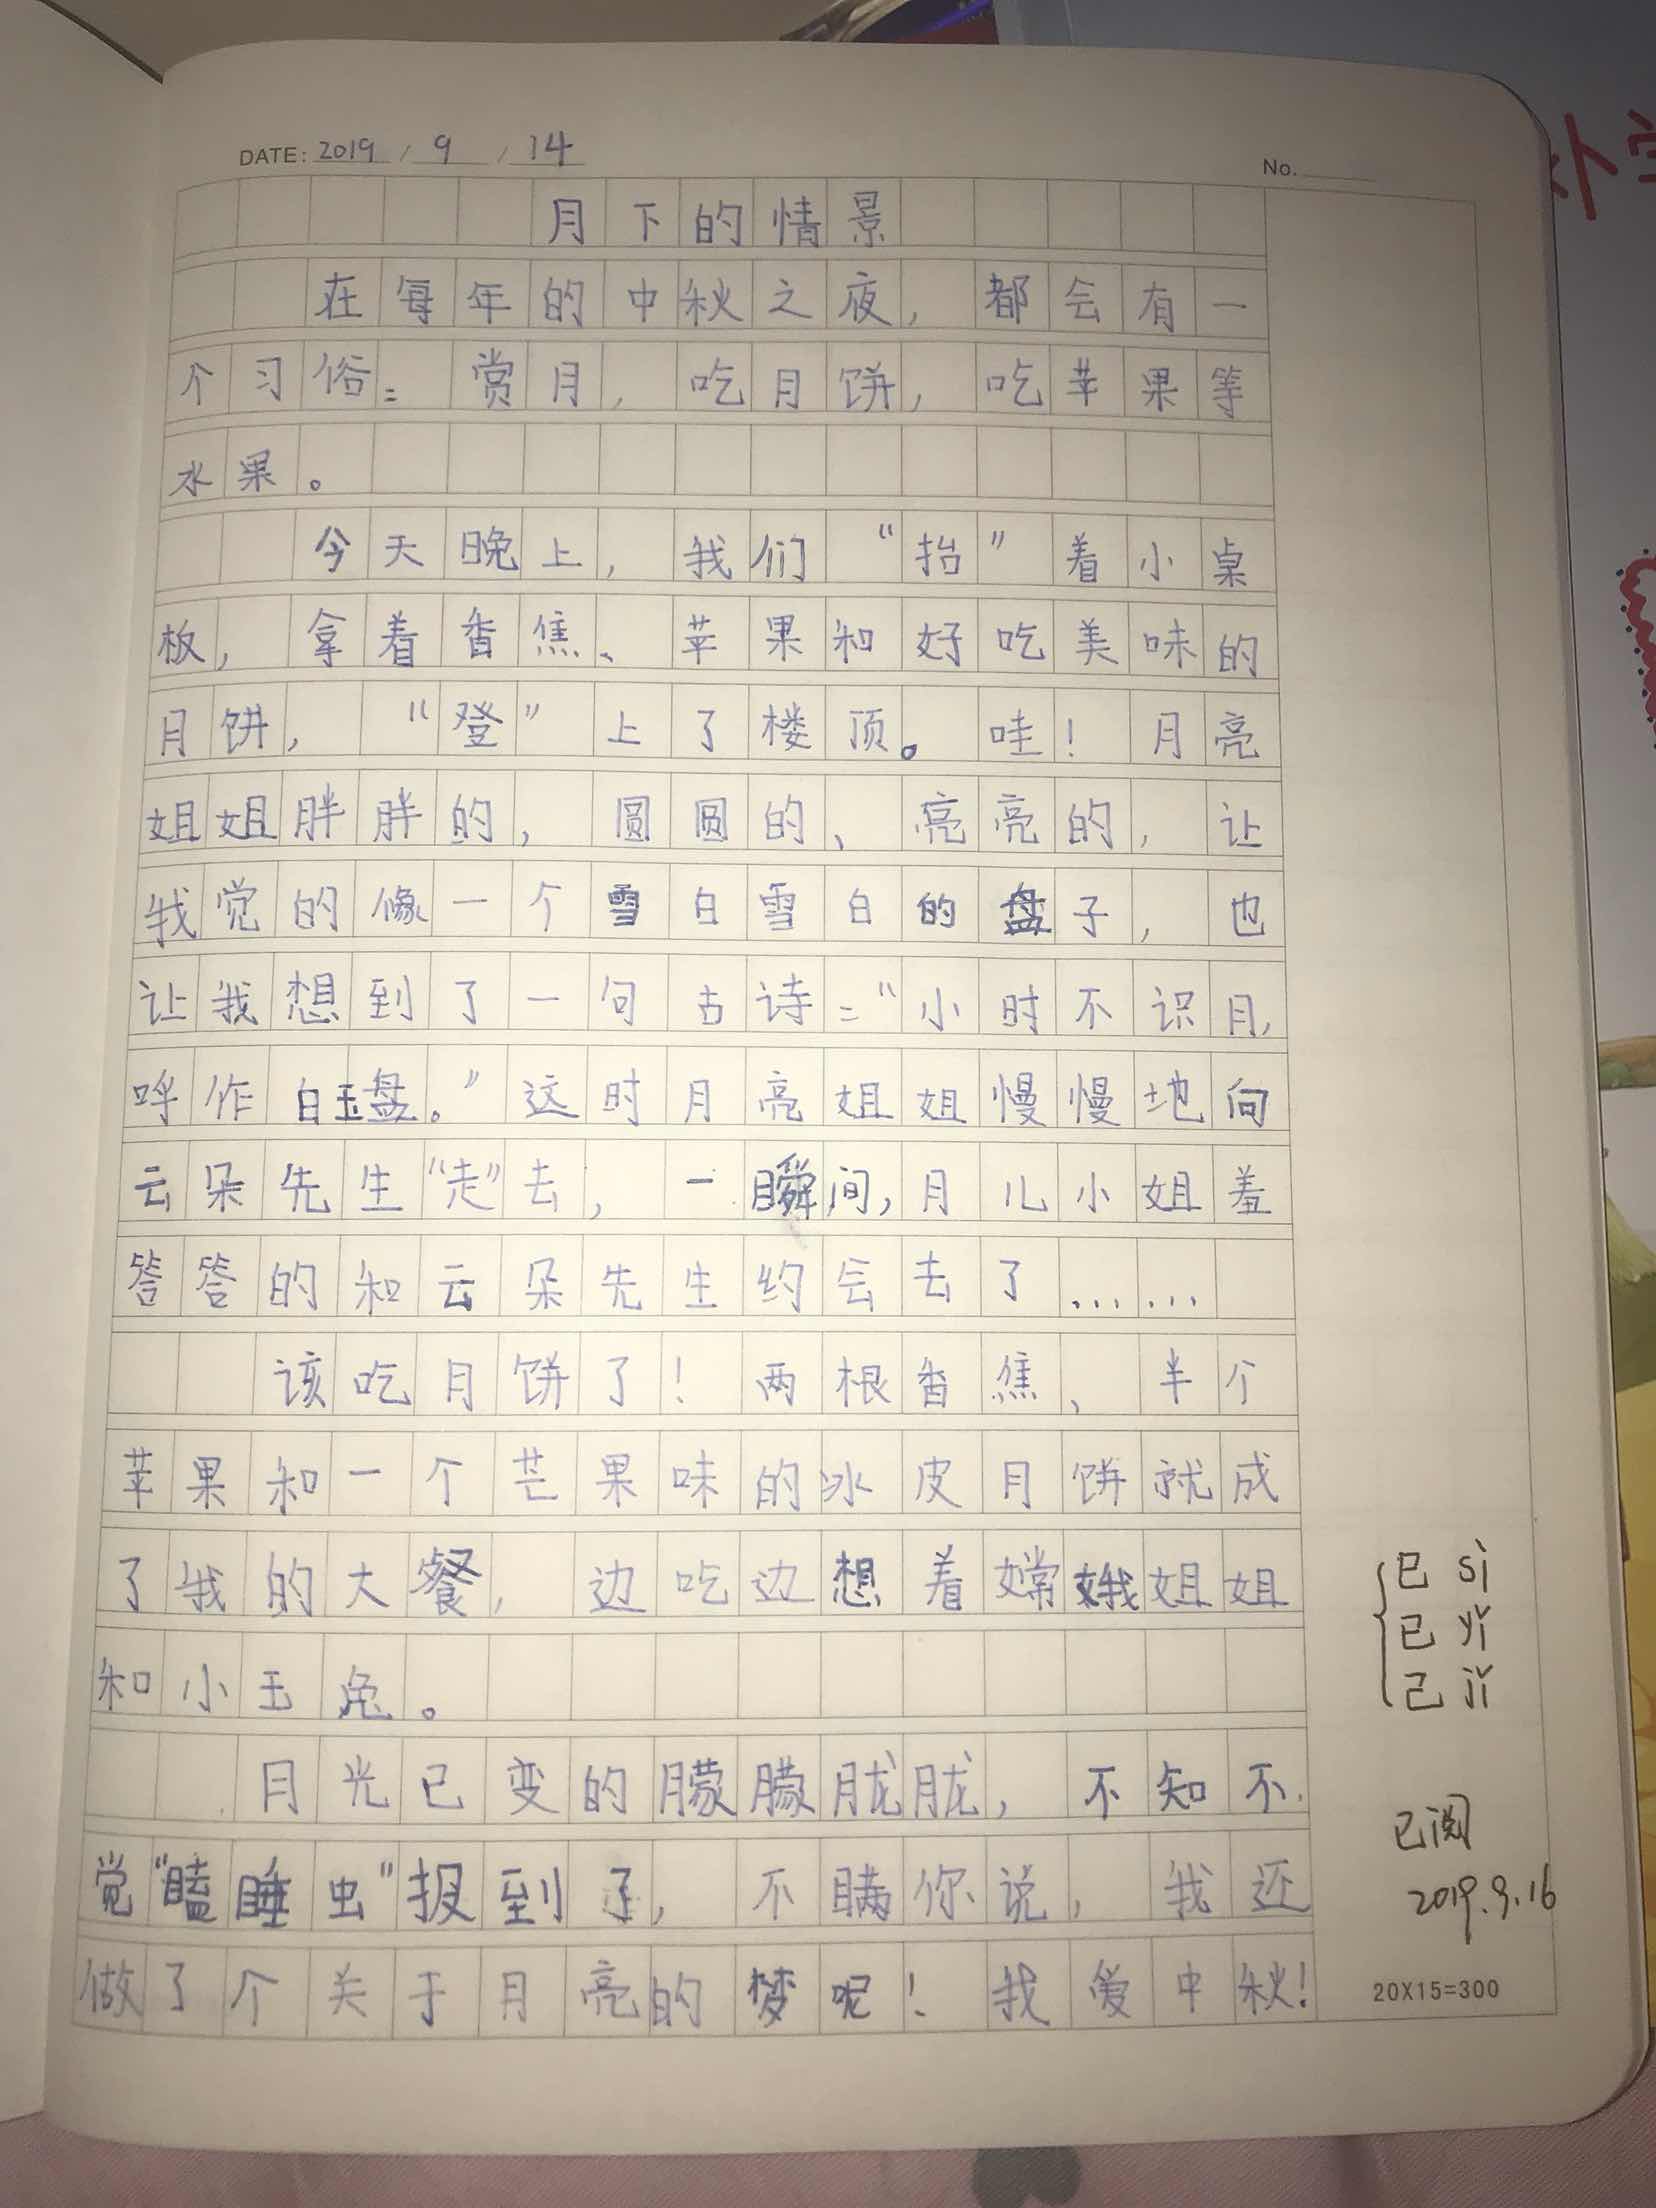 DATE: 2019 / 9 / 14
No.
月下的情景
在每年的中秋之夜，都会有一
个习俗：赏月，吃月饼，吃苹果等
水果。
今天晚上，我们“抬”着小桌
板，拿着香焦、苹果和好吃美味的
月饼，“登”上了楼顶。哇！月亮
姐姐胖胖的，圆圆的、亮亮的，让
我觉的像一个雪白雪白的盘子，也
让我想到了一句古诗：“小时不识月，
呼作白玉盘。”这时月亮姐姐慢慢地向
云朵先生“走”去，一瞬间，月儿小姐羞
答答的和云朵先生约会去了……
该吃月饼了！两根香焦、半个
苹果和一个芒果味的冰皮月饼就成
了我的大餐，边吃边想着嫦娥姐姐
和小玉兔。
月光已变的朦朦胧胧，不知不
觉“瞌睡虫”报到了，不瞒你说，我还
做了个关于月亮的梦呢！我爱中秋！
巳 sì
已 yǐ
己 jǐ
已阅
2019.9.16
20X15=300